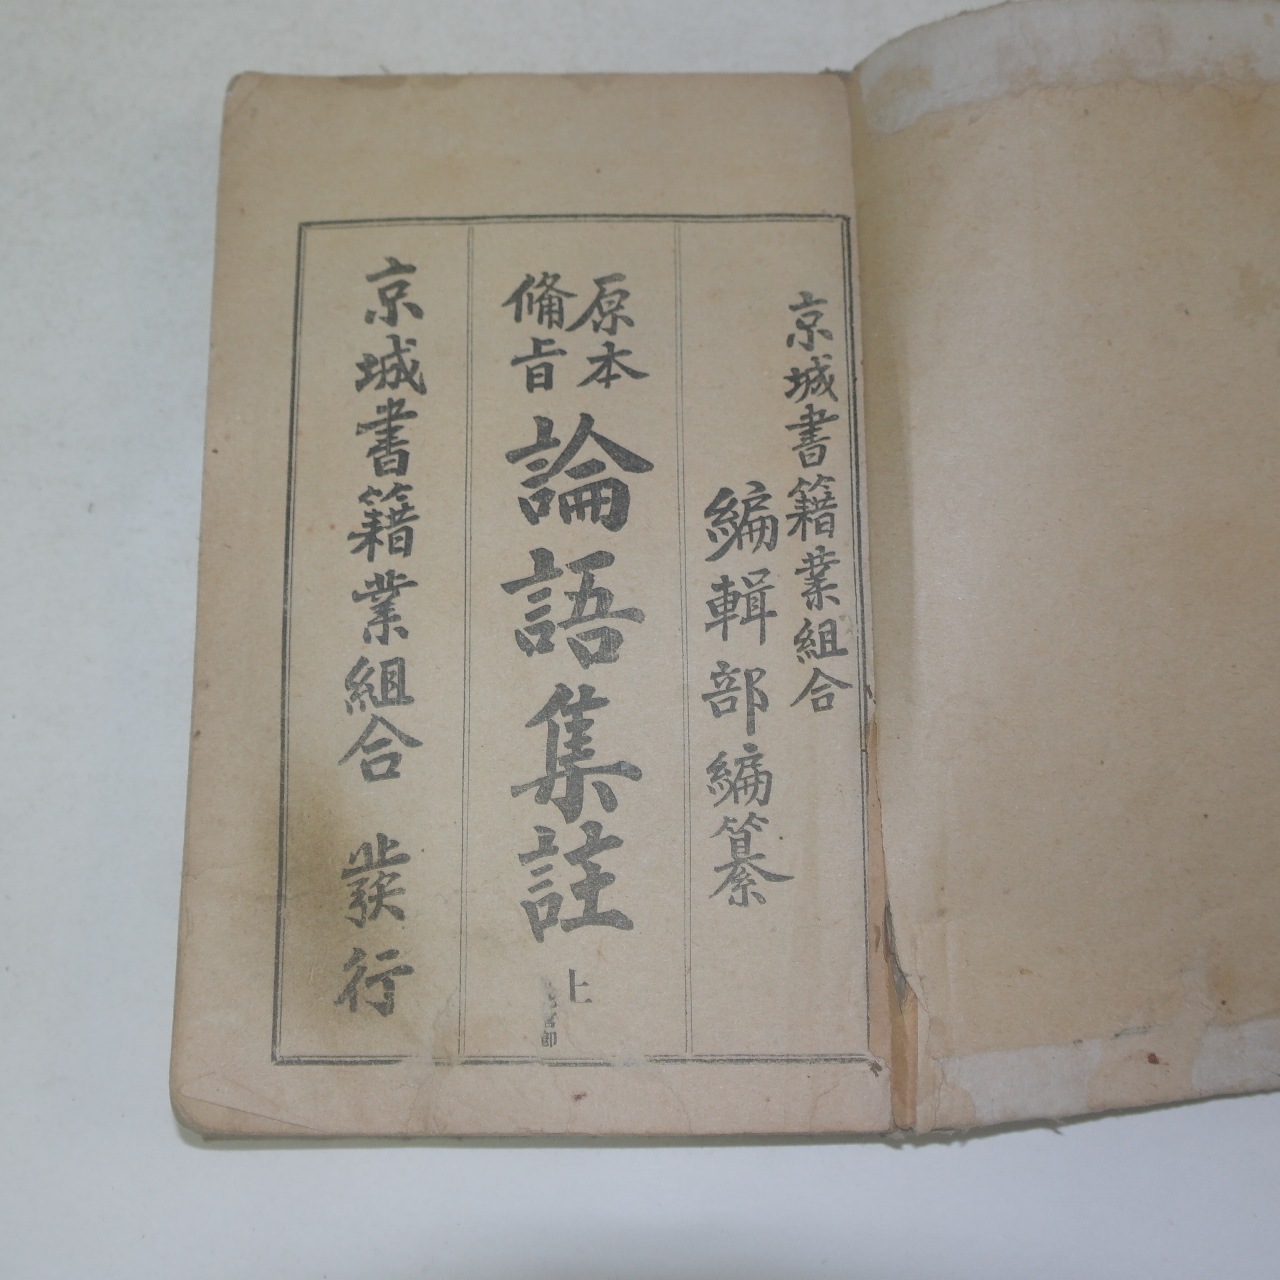 京城書籍業組合
編輯部編纂
原本
備旨
論語集註
上
京城書籍業組合 發行